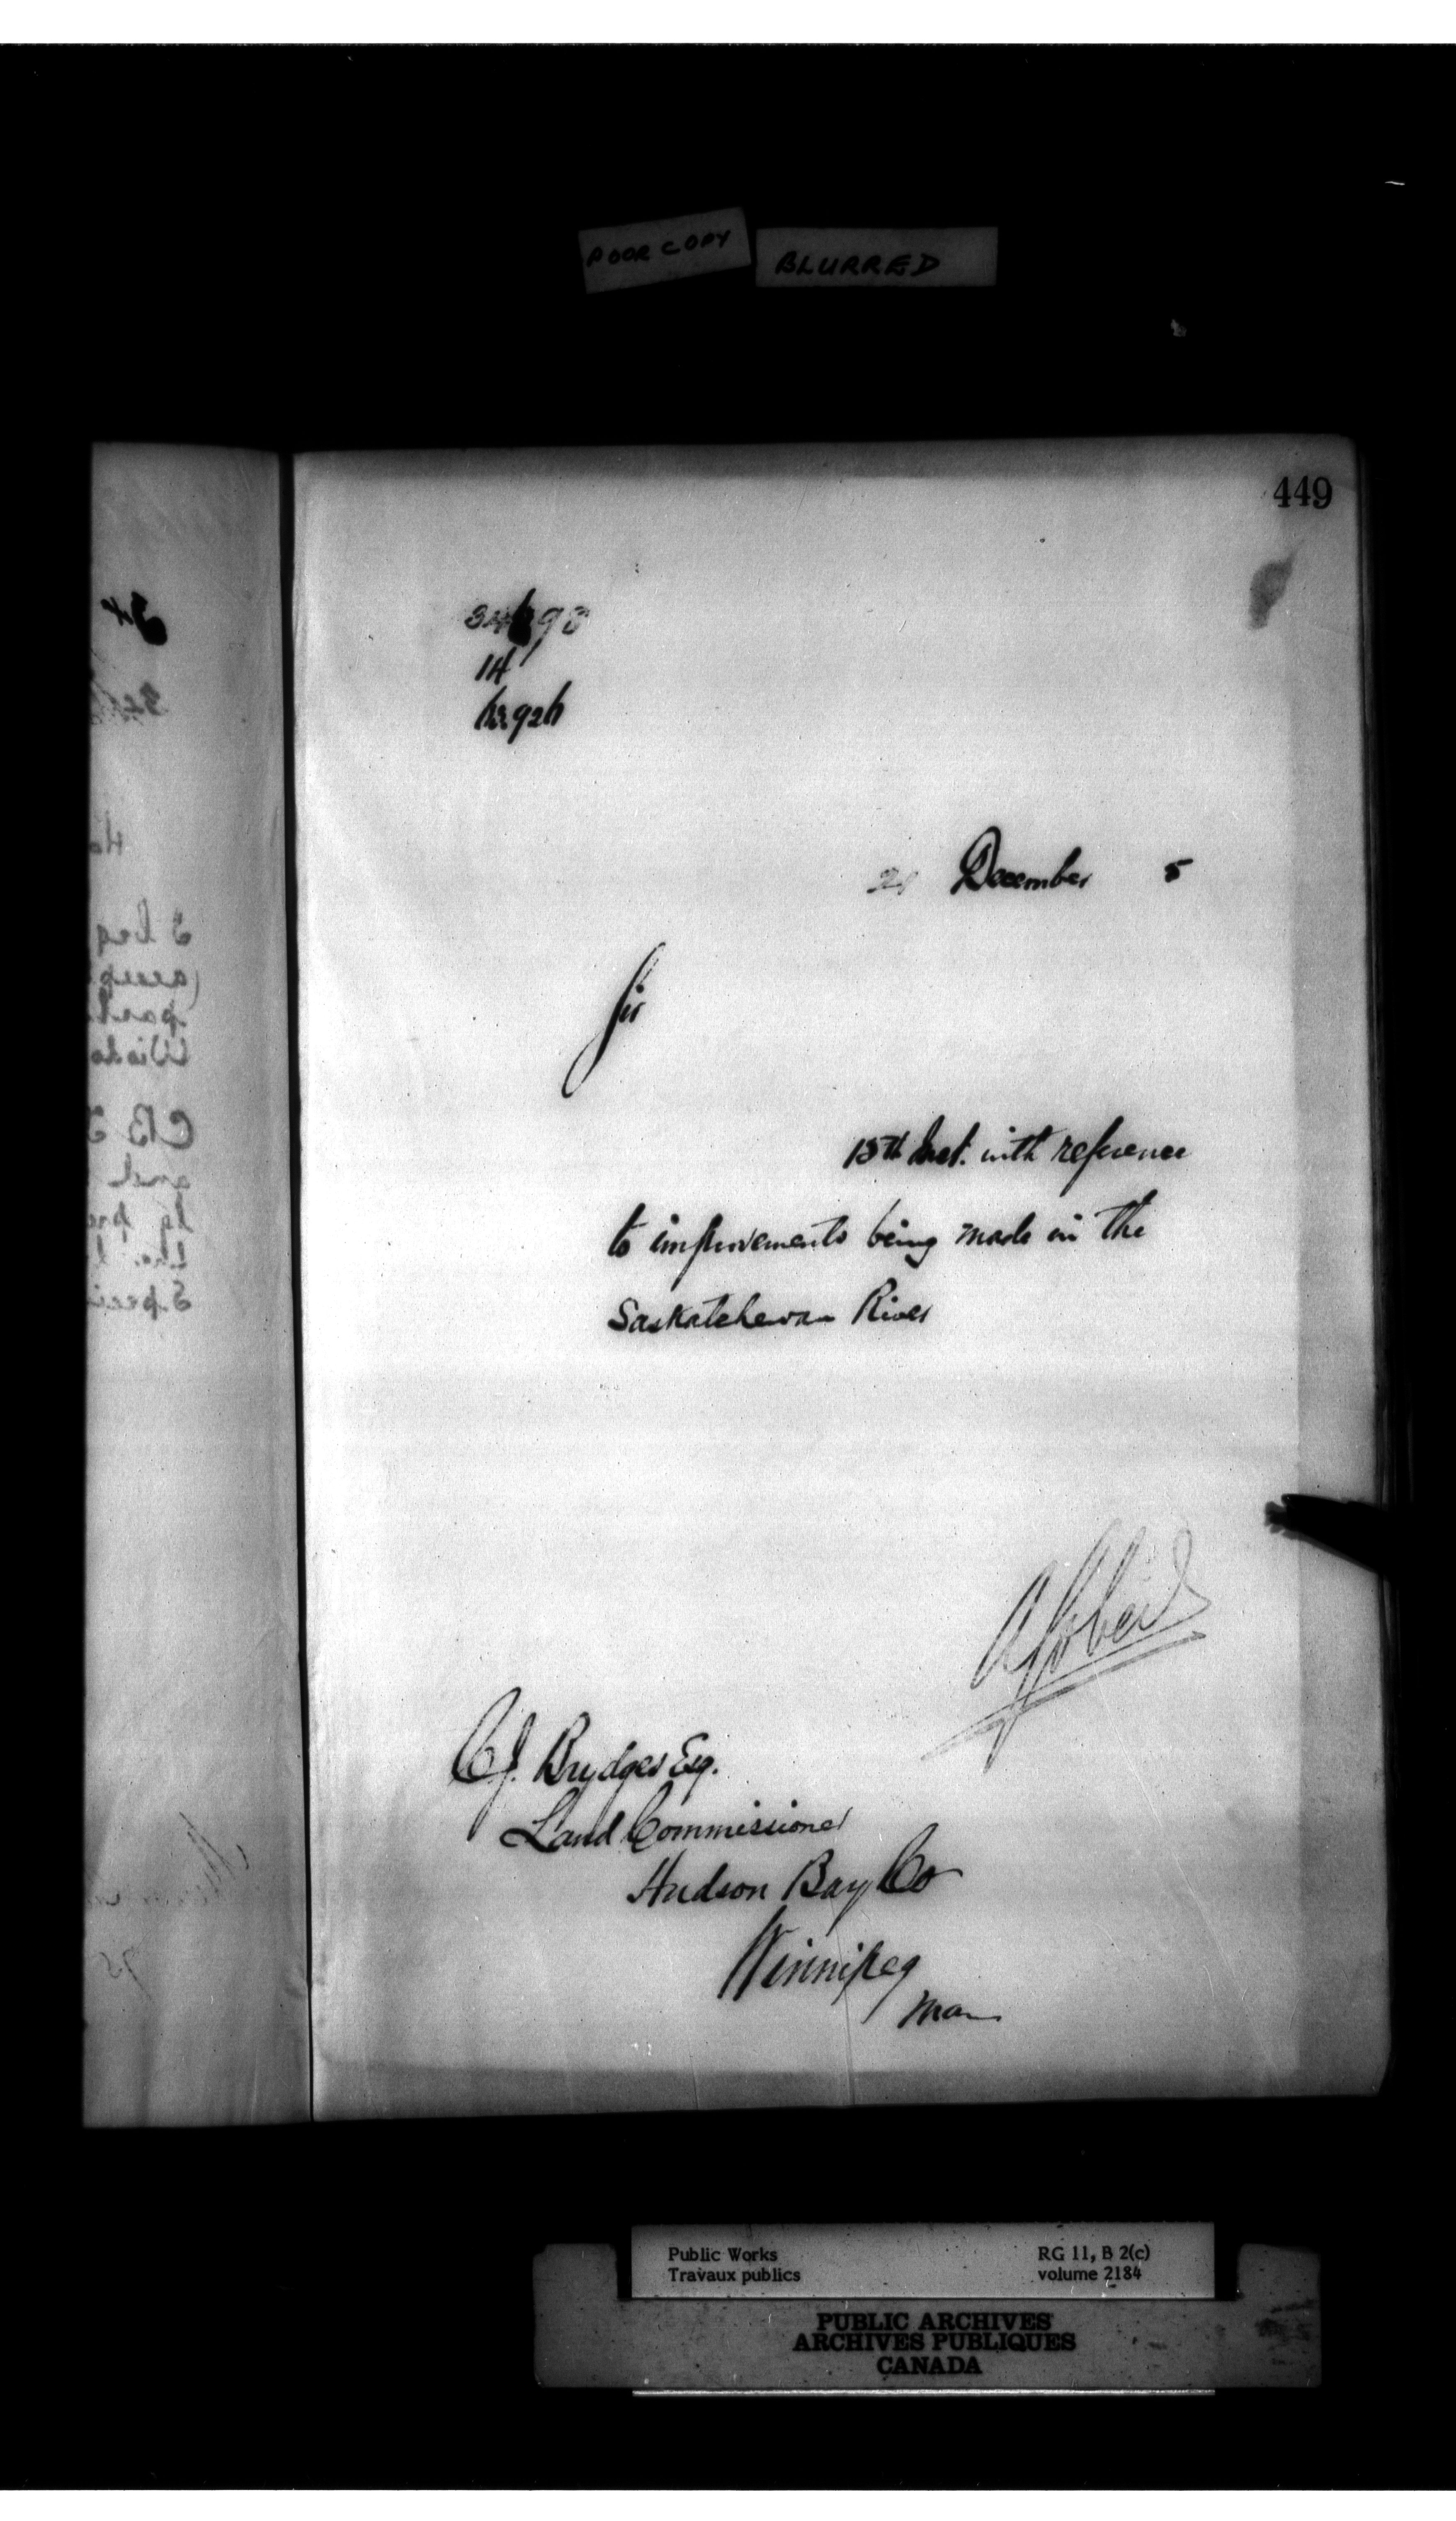 POOR COPY
BLURRED
449
14
21 December 5
Sir
15th Inst. with reference
to improvements being made in the
Saskatchewan River
A Gobeil
C.J. Brydges Esq.
Land Commissioner
Hudson Bay Co
Winnipeg
Man
Public Works
Travaux publics
RG 11, B 2(c)
volume 2184
PUBLIC ARCHIVES
ARCHIVES PUBLIQUES
CANADA